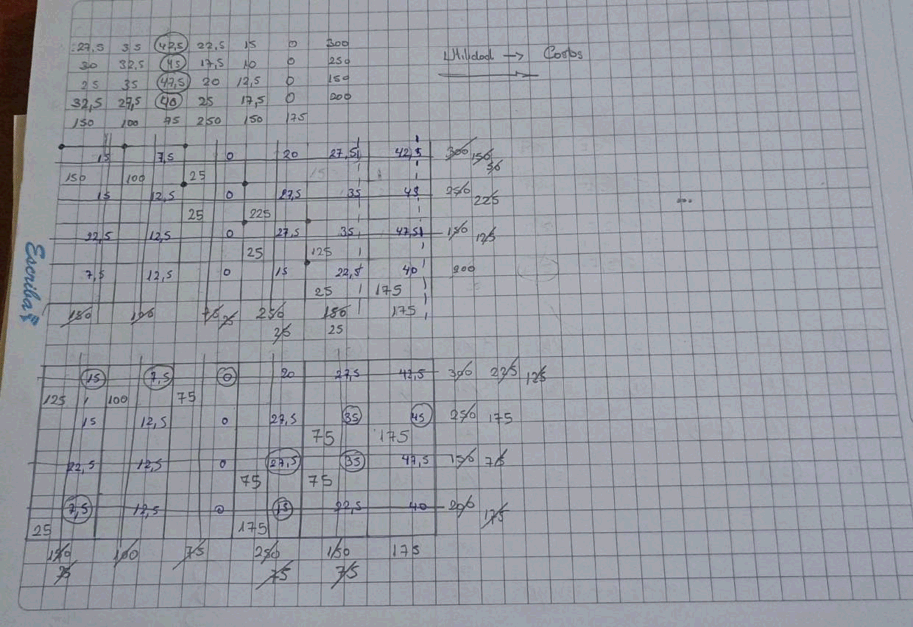 27,5 35 42,5 22,5 15 0 300
30 32,5 45 17,5 10 0 250
25 35 47,5 20 12,5 0 150
32,5 27,5 40 25 17,5 0 200
150 100 75 250 150 175
Utilidad → Costos
15 7,5 0 20 27,5 42,5 300 150 50
150 100 25
15 12,5 0 27,5 35 45 250 225
25 225
22,5 12,5 0 27,5 35 47,5 150 125
25 125
7,5 12,5 0 15 22,5 40 200
25 175
150 100 75 25 250 150 175
25 25
Escriba
15 7,5 0 20 27,5 42,5 300 225 125
125 100 75
15 12,5 0 27,5 35 45 250 175
75 175
22,5 12,5 0 27,5 35 47,5 150 75
75 75
7,5 12,5 0 15 22,5 40 200 175
25 175
150 100 75 250 150 175
75 75 75